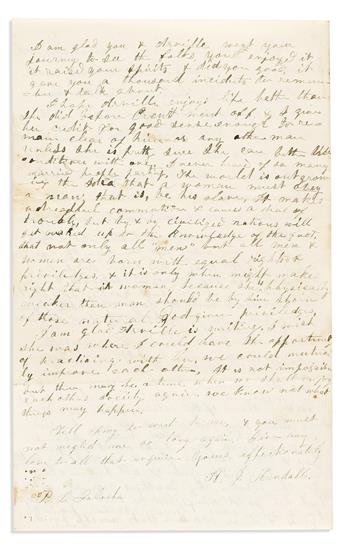 I am glad you & Arville went your
journey to see the folks, you enjoyed it
it raised your spirits & did you good, it
gave you a thousand incidents to remem
-ber & talk about.
I hope Arville enjoys life better than
she did before went off & I give
her credit for good sense not to re
man him or any other man
unless she is both sure she can better her
condition with one. I never of so many
married people part. The world is outgrow
ing the idea that a woman must obey
a man, that is, be his slave. It makes
a deal of
trouble, but by & by civilized nations will
get waked up to the knowledge of the fact,
that not only all "men" but all men &
women are born with equal rights &
priviledges, & it is only when might makes
right that is woman, because she is physically
weaker than man should be by him shorn
of those natural God given priviledges,
I am glad Arville is writing, I wish
she was where I could have the opportunity
of practicing with her, we could mutual
ly improve each other, It is not impossible
but there may be a time when we shall enjoy
each others society again, we know not what
things may happen.
Tell to write to me, & you must
not neglect me so long again, Give my
love to all that inquire Yours affectionately
H. J. Kendall.